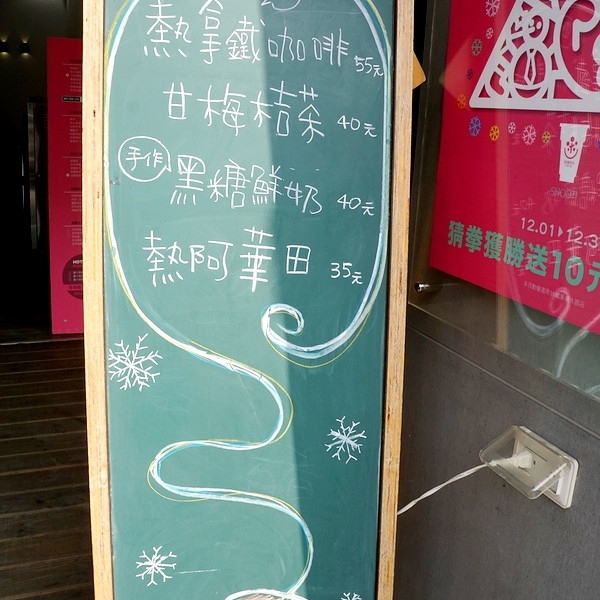 熱拿鐵咖啡 55元
甘梅桔茶 40元
手作 黑糖鮮奶 40元
熱阿華田 35元
12.01▶12.3
猜拳獲勝送10元